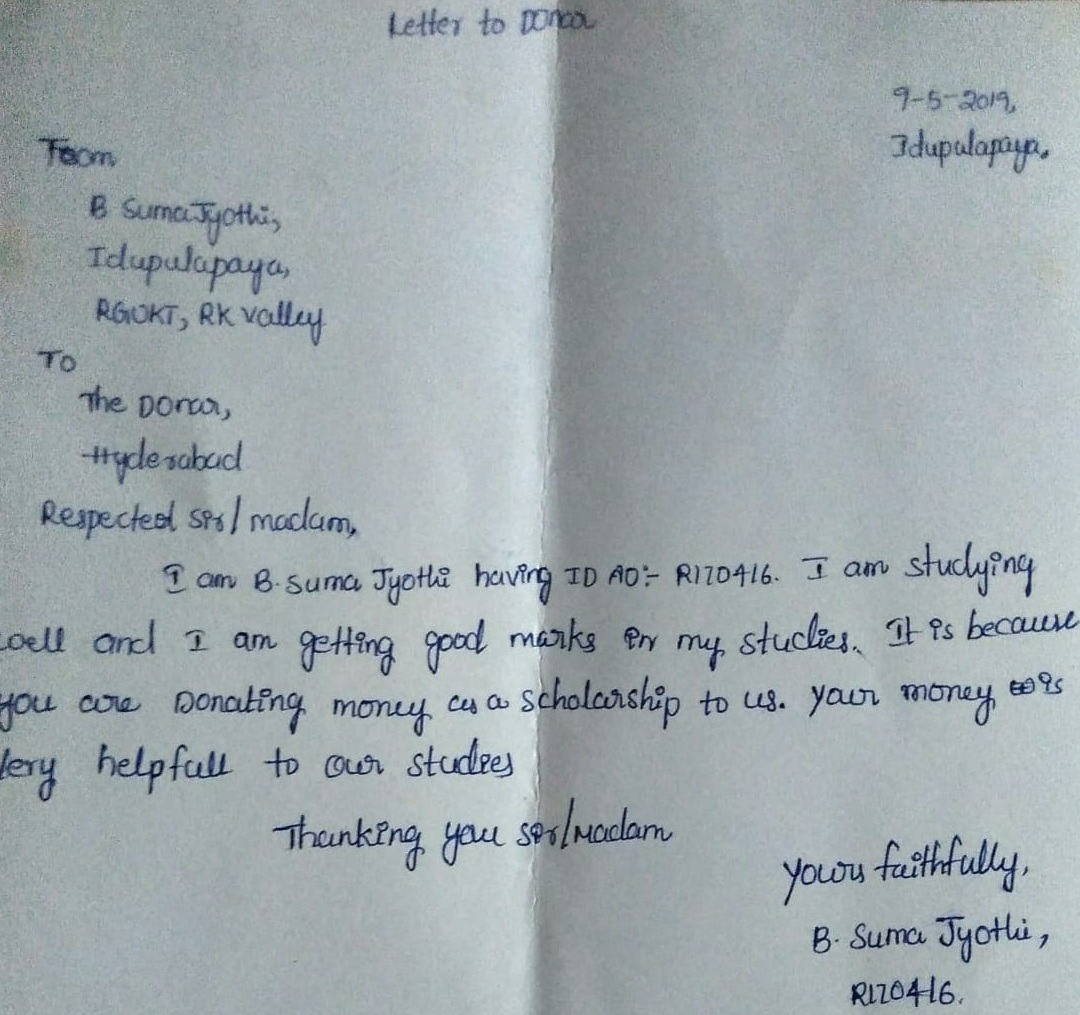 Letter to Donar
9-5-2019,
Idupulapaya.
From
B SumaJyothi,
Idupulapaya,
RGUKT, RK valley
To
The Donar,
Hyderabad
Respected sir/madam,
I am B.Suma Jyothi having ID NO:- R170416. I am studying
well and I am getting good marks in my studies. It is because
you are Donating money as a scholarship to us. your money is
Very helpfull to our studies
Thanking you sir/Madam
yours faithfully,
B. Suma Jyothi,
R170416.